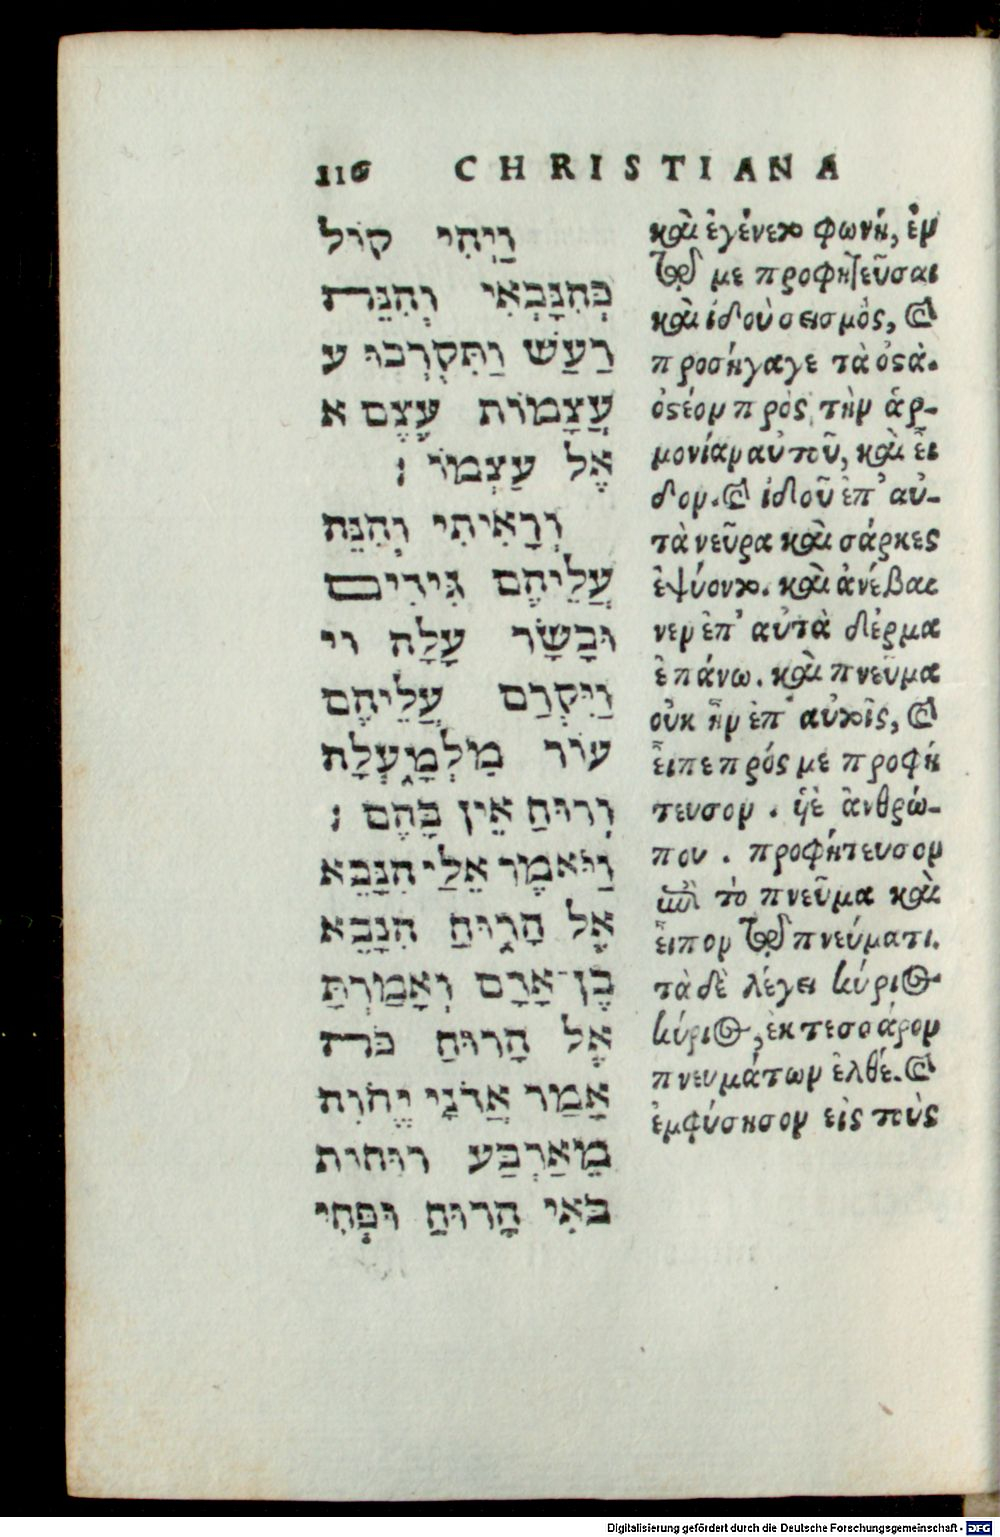 116 CHRISTIANA
וַיְהִי קוֹל
כְּהִנָּבְאִי וְהִנֵּה
רַעַשׁ וַתִּקְרְבוּ ע
עֲצָמוֹת עֶצֶם א
אֶל עַצְמוֹ :
וְרָאִיתִי וְהִנֵּה
עֲלֵיהֶם גִּידִים
וּבָשָׂר עָלָה וי
וַיִּקְרַם עֲלֵיהֶם
עוֹר מִלְמָעְלָה
וְרוּחַ אֵין בָּהֶם :
וַיּאמֶר אֵלַי הִנָּבֵא
אֶל הָרוּחַ הִנָבֵא
בֶן־אָדָם וְאָמַרְתָּ
אֶל הָרוּחַ כֹּה
אָמַר אֲדֹנָי יֱהֹוִה
מֵאַרְבַּע רוּחוֹת
בֹּאִי הָרוּחַ וּפְּחִי
καὶ ἐγένετο φωνή, ἐν
τῷ με προφητεῦσαι
καὶ ἰδοὺ σεισμὸς, καὶ
προσήγαγε τὰ ὀστὰ.
ὀστέον πρὸς τὴν ἁρ-
μονίαν αὐτοῦ, καὶ εἶ
δον. καὶ ἰδοῦ ἐπ᾽ αὐ-
τὰ νεῦρα καὶ σάρκες
ἐφύοντο. καὶ ἀνέβαι
νεν ἐπ᾽ αὐτὰ δέρμα
ἐπάνω. καὶ πνεῦμα
οὐκ ἦν ἐπ᾽ αὐτοῖς, καὶ
εἶπε πρός με προφή
τευσον . υἱὲ ἀνθρώ-
που . προφήτευσον
ἐπὶ τὸ πνεῦμα καὶ
εἶπον τῷ πνεύματι.
τὰ δὲ λέγει κύριος
κύριος, ἐκ τεσσάρον
πνευμάτων ἐλθέ. καὶ
ἐμφύσησον εἰς τοὺς
Digitalisierung gefördert durch die Deutsche Forschungsgemeinschaft - DFG